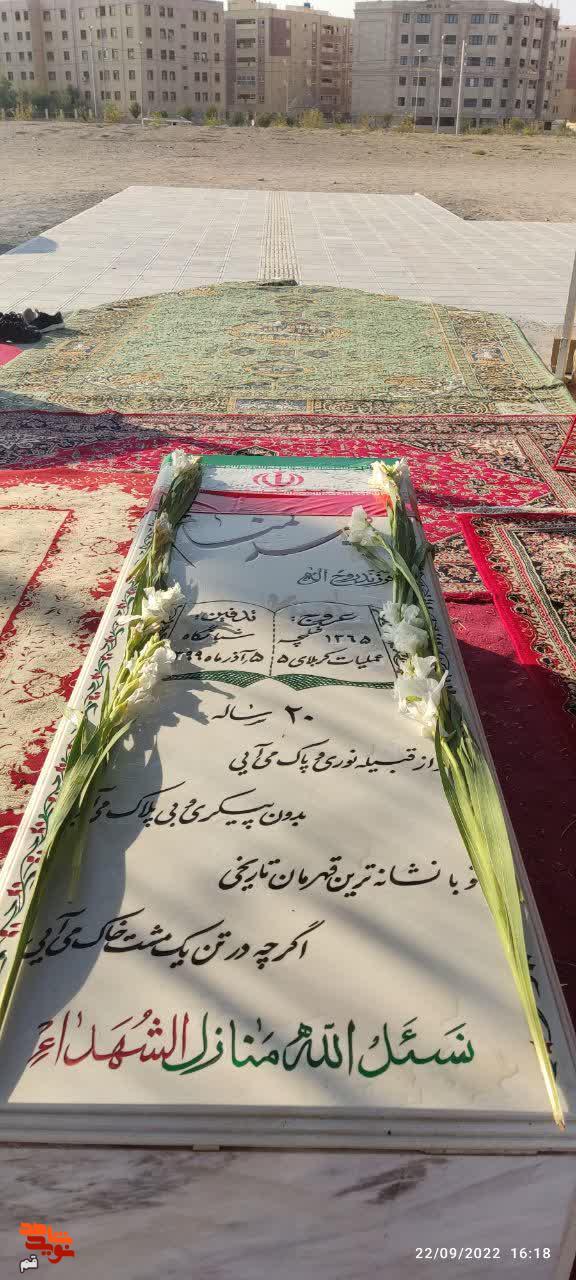 شهید گمنام
فرزند روح الله
عروج:
۱۳۶۵ شلمچه
عملیات کربلای ۵
تدفین:
۵ آذر ماه ۱۳۹۹
۲۰ ساله
از قبیله نوری و پاک می‌آیی
بدون پیکری و بی پلاک می‌آیی
تو با نشانه ترین قهرمان تاریخی
اگرچه در تن یک مشت خاک می‌آیی
نَسئَلُ اللهَ مَنازِلَ الشُهَداء
نوید شاهد
قم
22/09/2022 16:18